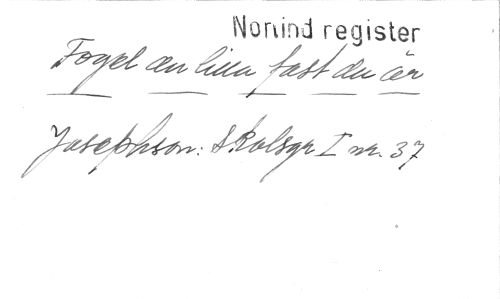 Norlind register
Fogel du lilla fast du är
Josephson: Skolsgr I nr. 37